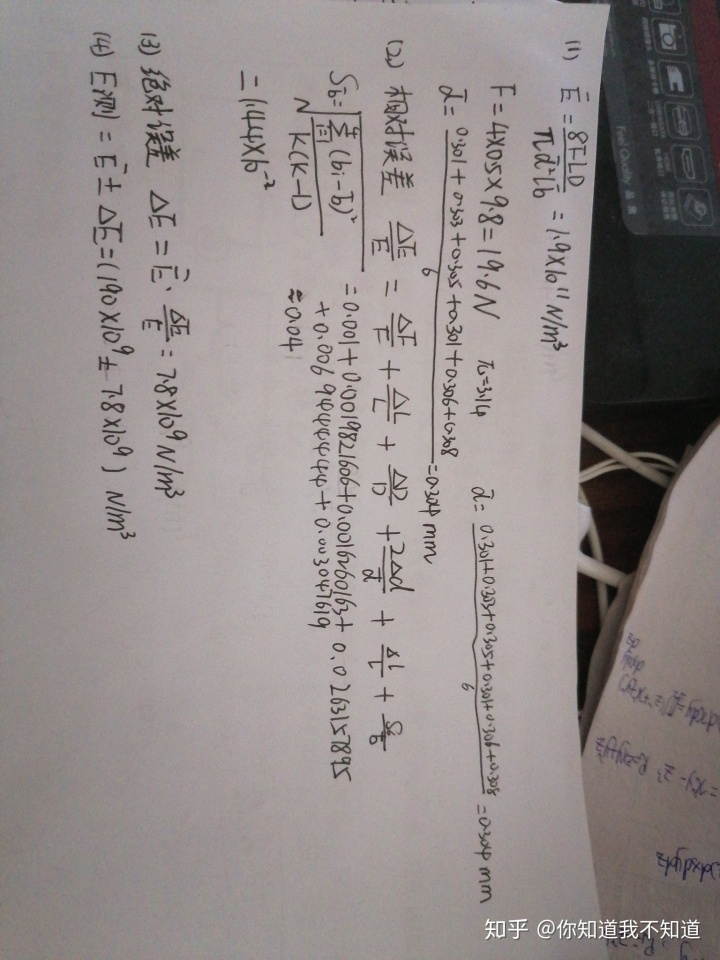 (1) Ē = 8FLD / πd̄²l b̄ = 1.9×10¹¹ N/m³
F = 4×0.5×9.8 = 19.6N π=3.14
d̄ = 0.301+0.303+0.305+0.301+0.306+0.308 / 6 = 0.304 mm
d̄ = 0.301+0.303+0.305+0.301+0.306+0.308 / 6 = 0.304 mm
(2) 相对误差 ΔE/E = ΔF/F + ΔL/L + ΔD/D + 2Δd/d + Δl/l +
= 0.001 + 0.0019821606 + 0.0016260163 + 0.0263157895
+ 0.00694444444 + 0.003047619
≈ 0.04
(bi-b̄)² / K(K-1)
= 1.44×10⁻²
(3) 绝对误差 ΔE = Ē · ΔE/E = 7.8×10⁹ N/m³
(4) E测 = Ē ± ΔE = (190×10⁹ ± 7.8×10⁹) N/m³
知乎 @你知道我不知道